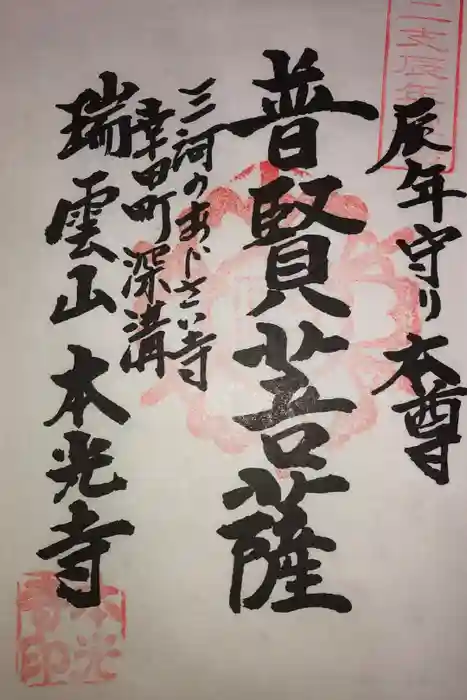 二支辰年
辰年守り本尊
普賢菩薩
三河のあじさい寺
幸田町深溝
瑞雲山本光寺
本光寺印